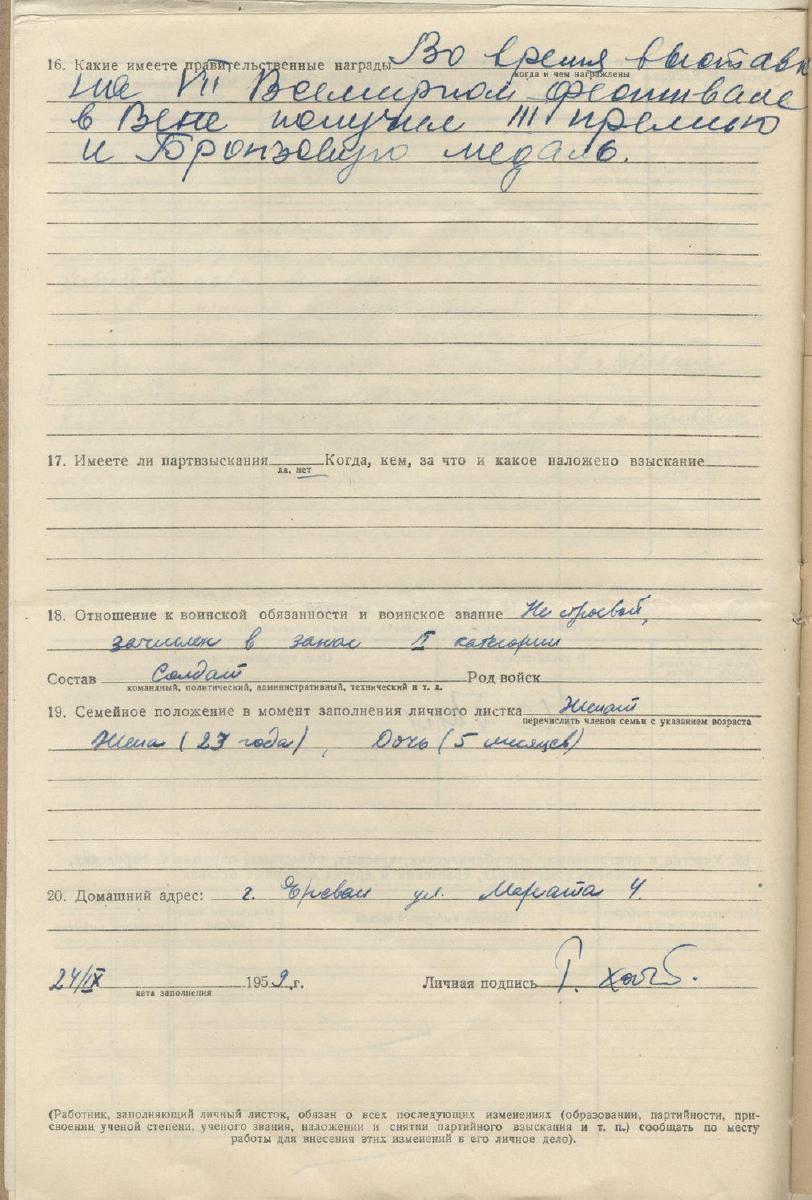 16. Какие имеете правительственные награды Во время выставки
когда и чем награждены
на VII Всемирном фестивале
в Вене получил III премию
и Бронзовую медаль.
17. Имеете ли партвзыскания Когда, кем, за что и какое наложено взыскание
да, нет
18. Отношение к воинской обязанности и воинское звание Не строевой,
зачислен в запас II категории
Состав Солдат Род войск
командный, политический, административный, технический и т. д.
19. Семейное положение в момент заполнения личного листка Женат
перечислить членов семьи с указанием возраста
Жена (27 года), Дочь (5 месяцев)
20. Домашний адрес: г. Ереван ул. 4.
24/IX 1959 г. Личная подпись Г.
дата заполнения
(Работник, заполняющий личный листок, обязан о всех последующих изменениях (образовании, партийности, при-
своении ученой степени, ученого звания, наложении и снятии партийного взыскания и т. п.) сообщать по месту
работы для внесения этих изменений в его личное дело).